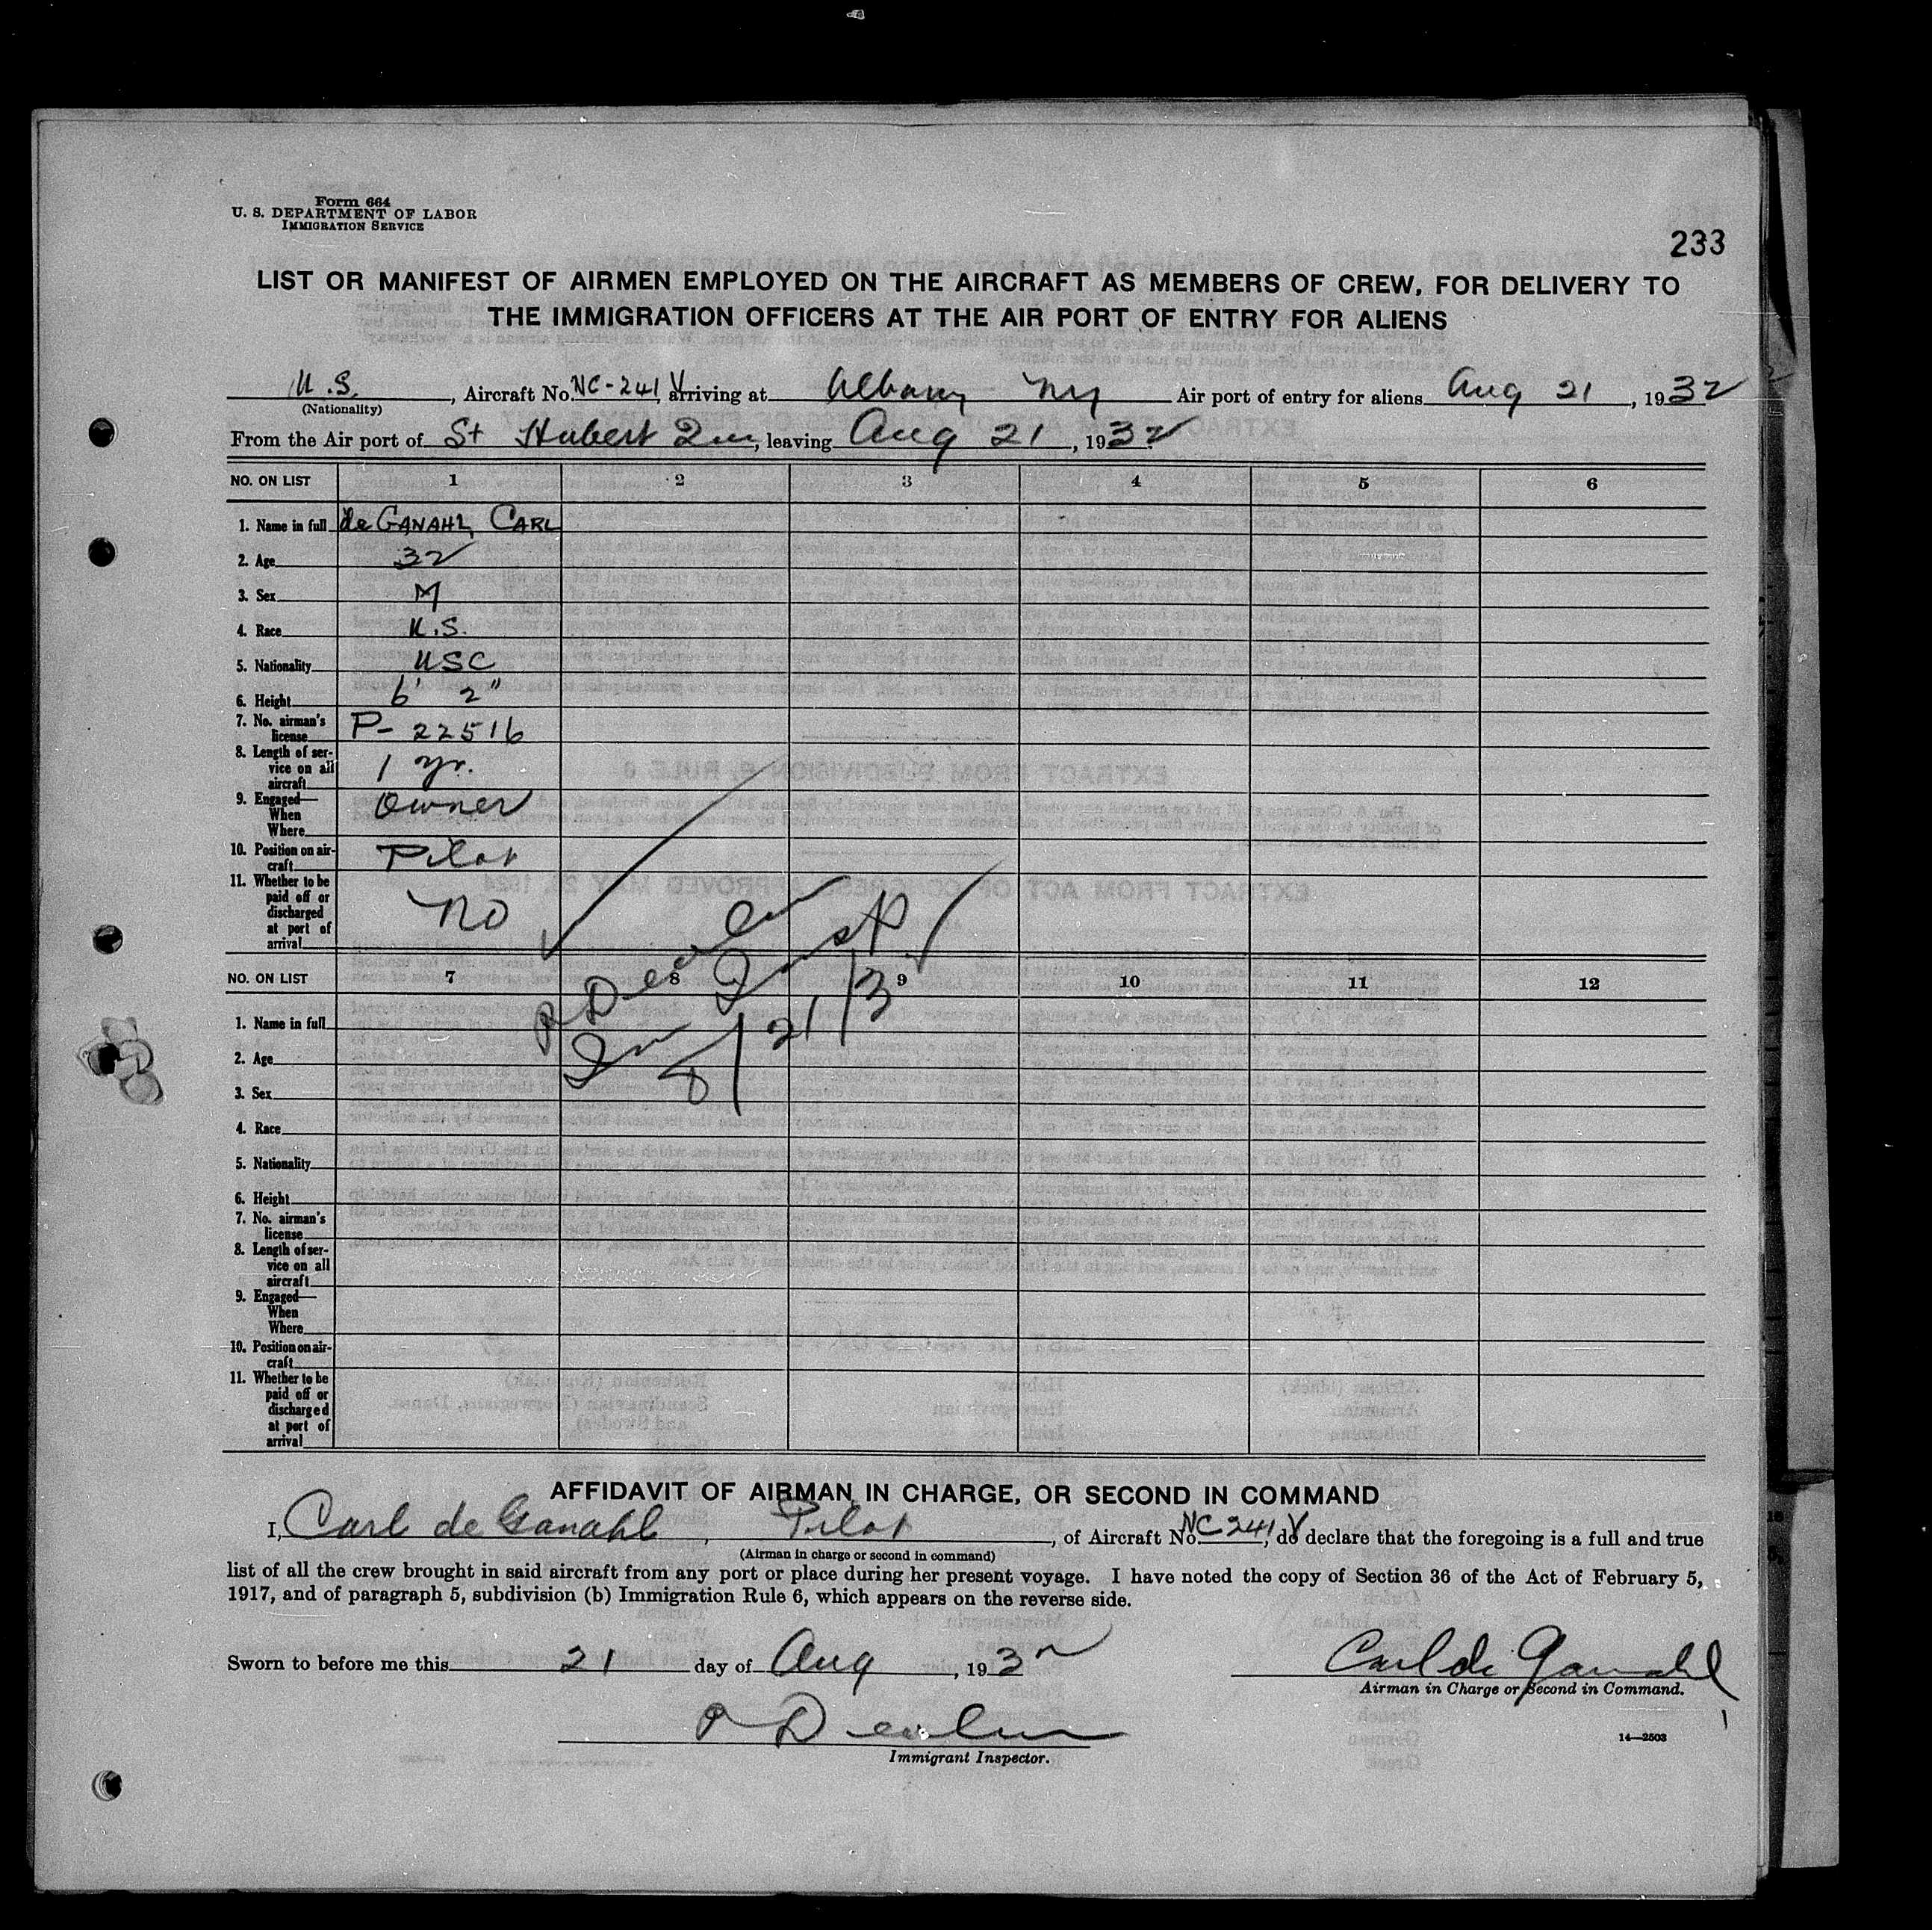 Form 664
U. S. DEPARTMENT OF LABOR
IMMIGRATION SERVICE
233
LIST OR MANIFEST OF AIRMEN EMPLOYED ON THE AIRCRAFT AS MEMBERS OF CREW, FOR DELIVERY TO
THE IMMIGRATION OFFICERS AT THE AIR PORT OF ENTRY FOR ALIENS
U.S., Aircraft No. NC-241 V arriving at Albany NY Air port of entry for aliens Aug 21, 1932
(Nationality)
From the Air port of St Hubert Que, leaving Aug 21, 1932.
NO. ON LIST 1 2 3 4 5 6
1. Name in full de GANAHL CARL
2. Age 32
3. Sex M
4. Race U.S.
5. Nationality USC
6. Height 6' 2"
7. No. airman's
license P-22516
8. Length of ser-
vice on all 1 yr.
aircraft
9. Engaged— Owner
When
Where
10. Position on air-
craft Pilot
11. Whether to be
paid off or
discharged No
at port of
arrival
NO. ON LIST 7 8 9 10 11 12
8/21/3
1. Name in full
2. Age
3. Sex
4. Race
5. Nationality
6. Height
7. No. airman's
license
8. Length of ser-
vice on all
aircraft
9. Engaged—
When
Where
10. Position on air-
craft
11. Whether to be
paid off or
discharged
at port of
arrival
AFFIDAVIT OF AIRMAN IN CHARGE, OR SECOND IN COMMAND
I, Carl de Ganahl, Pilot, of Aircraft No. NC241V, do declare that the foregoing is a full and true
(Airman in charge or second in command)
list of all the crew brought in said aircraft from any port or place during her present voyage. I have noted the copy of Section 36 of the Act of February 5,
1917, and of paragraph 5, subdivision (b) Immigration Rule 6, which appears on the reverse side.
Sworn to before me this 21 day of Aug, 1932 Carl de Ganahl
Airman in Charge or Second in Command.
Immigrant Inspector.
14—2503